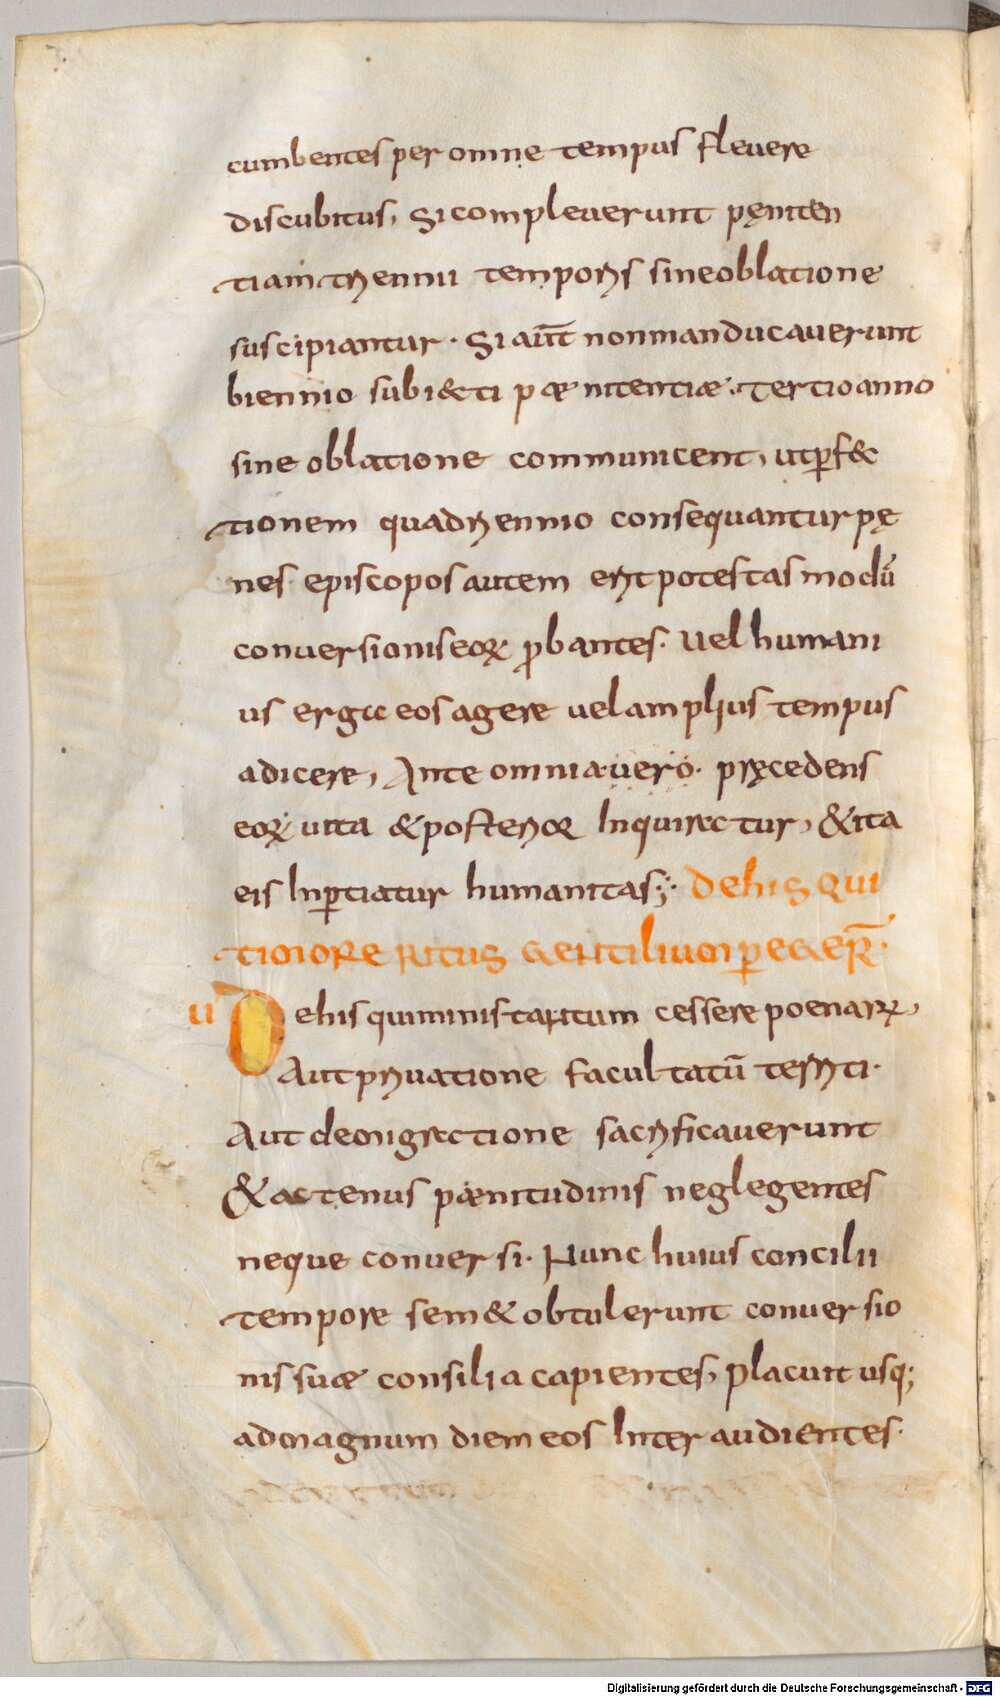 cumbentes per omne tempus flevere
discubitus, Si compleverunt pęniten
tiam triennii temporis sine oblatione
suscipiantur. Si aut̄ non manducaverunt
biennio subiecti pænitentiæ. Tertio anno
sine oblatione communicent, ut ꝑfec
tionem quadriennio consequantur pę
nes episcopos autem erit potestas modū
conversionis eoꝝ ꝓbantes. Vel humani
us erga eos agere vel amplius tempus
adicere, Ante omnia vero. pręcedens
eoꝝ vita & posterior Inquiratur, & ita
eis Inꝑtiatur humanitas;. De his qui
timore ritus gentilium ꝑeger̄.
u De his qui ministrantum cessere poenarꝝ,
Aut privatione facultatū territi.
Aut demigratione sacrificaverunt
& actenus pænitudinis neglegentes
neque conversi. Nunc huius concilii
tempore sem& obtulerunt conversio
nis suæ consilia capientes, placuit usq;
ad magnum diem eos Inter audientes.
Digitalisierung gefördert durch die Deutsche Forschungsgemeinschaft - DFG